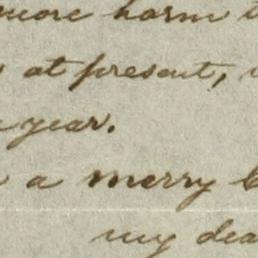 more harm
at present,
year.
a merry
my dea